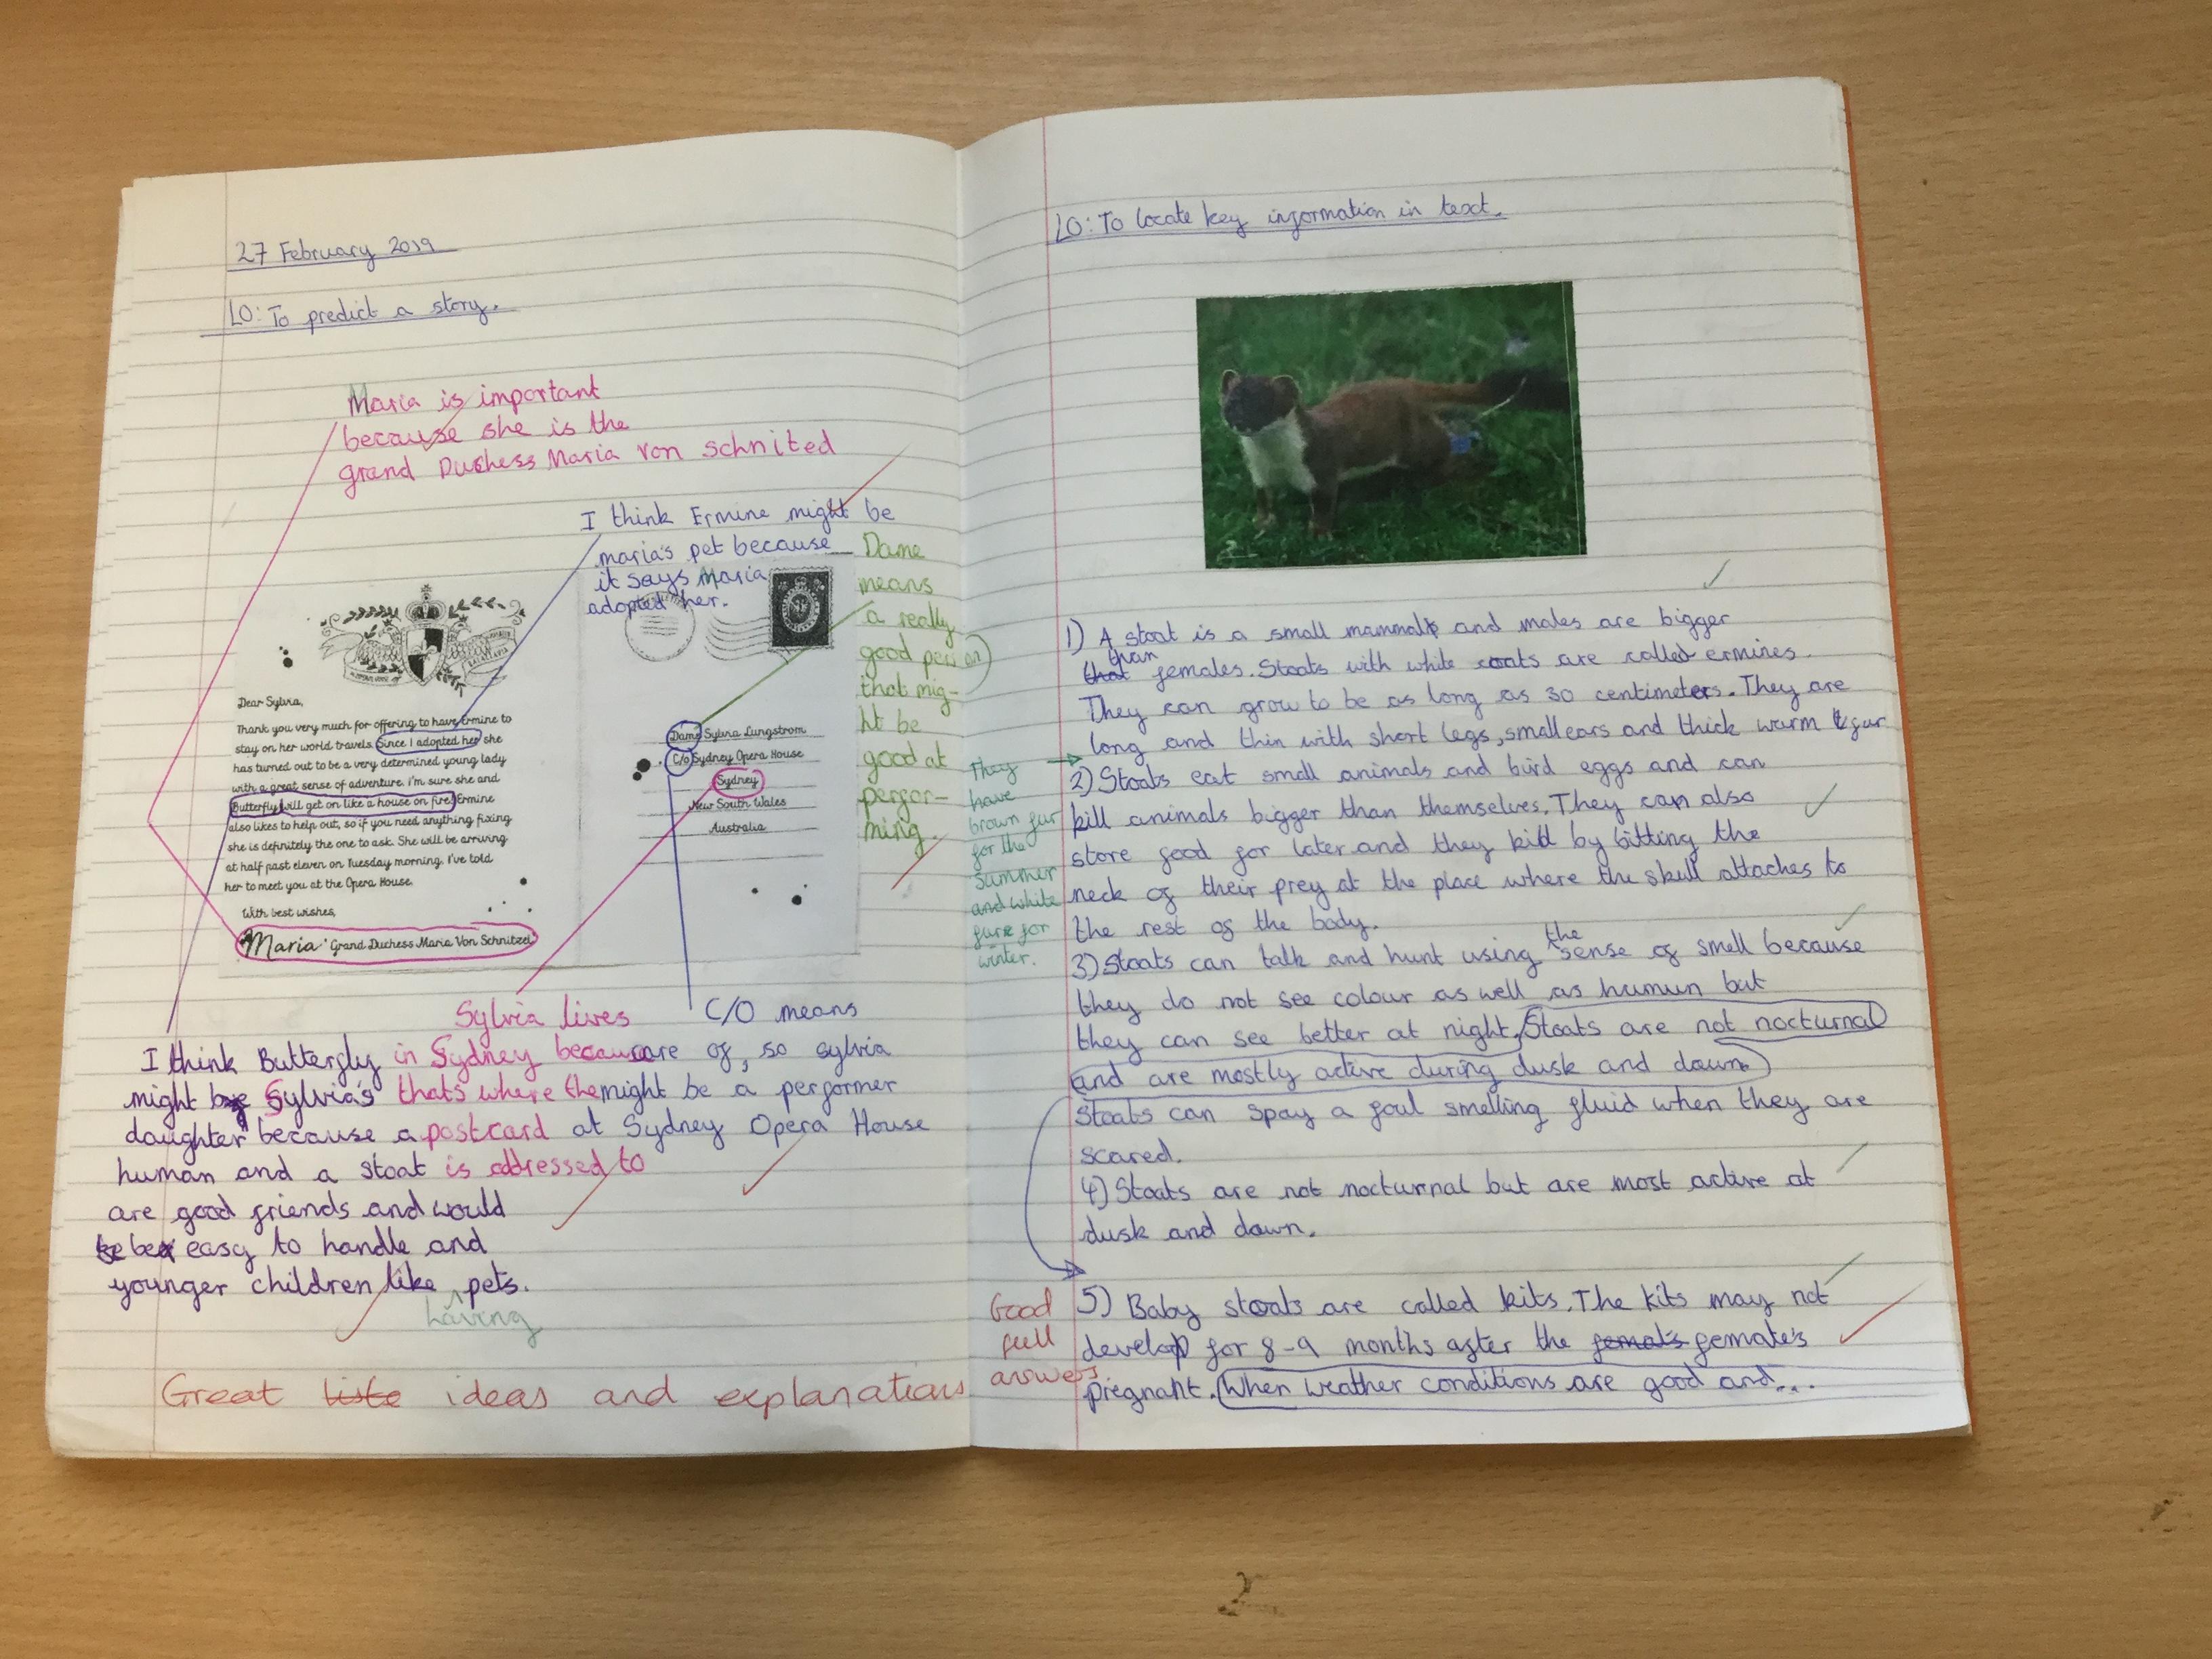 27 February 2019
LO: To predict a story.
Maria is important
because she is the
grand Duchess Maria Von Schnited
I think Ermine might be
maria's pet because
it says Maria
adopted her.
Dame
means
a really
good person
that mig-
ht be
good at
perfor-
ming.
Dear Sylvia,
Thank you very much for offering to have Ermine to
stay on her world travels. Since I adopted her she
has turned out to be a very determined young lady
with a great sense of adventure. I'm sure she and
Butterfly will get on like a house on fire! Ermine
also likes to help out, so if you need anything fixing
she is definitely the one to ask. She will be arriving
at half past eleven on Tuesday morning. I've told
her to meet you at the Opera House.
With best wishes,
Maria Grand Duchess Maria Von Schnitzel
Dame Sylvia Lungstrom
C/o Sydney Opera House
Sydney
New South Wales
Australia
Sylvia lives
in Sydney becau
thats where the
postcard
is addressed to
C/O means
care of, so sylvia
might be a performer
at Sydney Opera House
I think Butterfly
might be Sylvia's
daughter because a
human and a stoat
are good friends and would
be easy to handle and
younger children like having pets.
Great liste ideas and explanations
LO: To locate key information in text.
1) A stoat is a small mammal and males are bigger
that than females. Stoats with white coats are called ermines.
They can grow to be as long as 30 centimeters. They are
long and thin with short legs, small ears and thick warm fur
They
have
brown fur
for the
summer
and white
fure for
winter.
2) Stoats eat small animals and bird eggs and can
kill animals bigger than themselves. They can also
store food for later and they kill by bitting the
neck of their prey at the place where the skull attaches to
the rest of the body.
3) Stoats can talk and hunt using the sense of smell because
they do not see colour as well as human but
they can see better at night. Stoats are not nocturnal
and are mostly active during dusk and dawn.
Stoats can spay a foul smelling fluid when they are
scared.
4) Stoats are not nocturnal but are most active at
dusk and dawn.
5) Baby stoats are called kits. The kits may not
develop for 8-9 months after the femal's female's
pregnant. When weather conditions are good and...
Good
full
answers